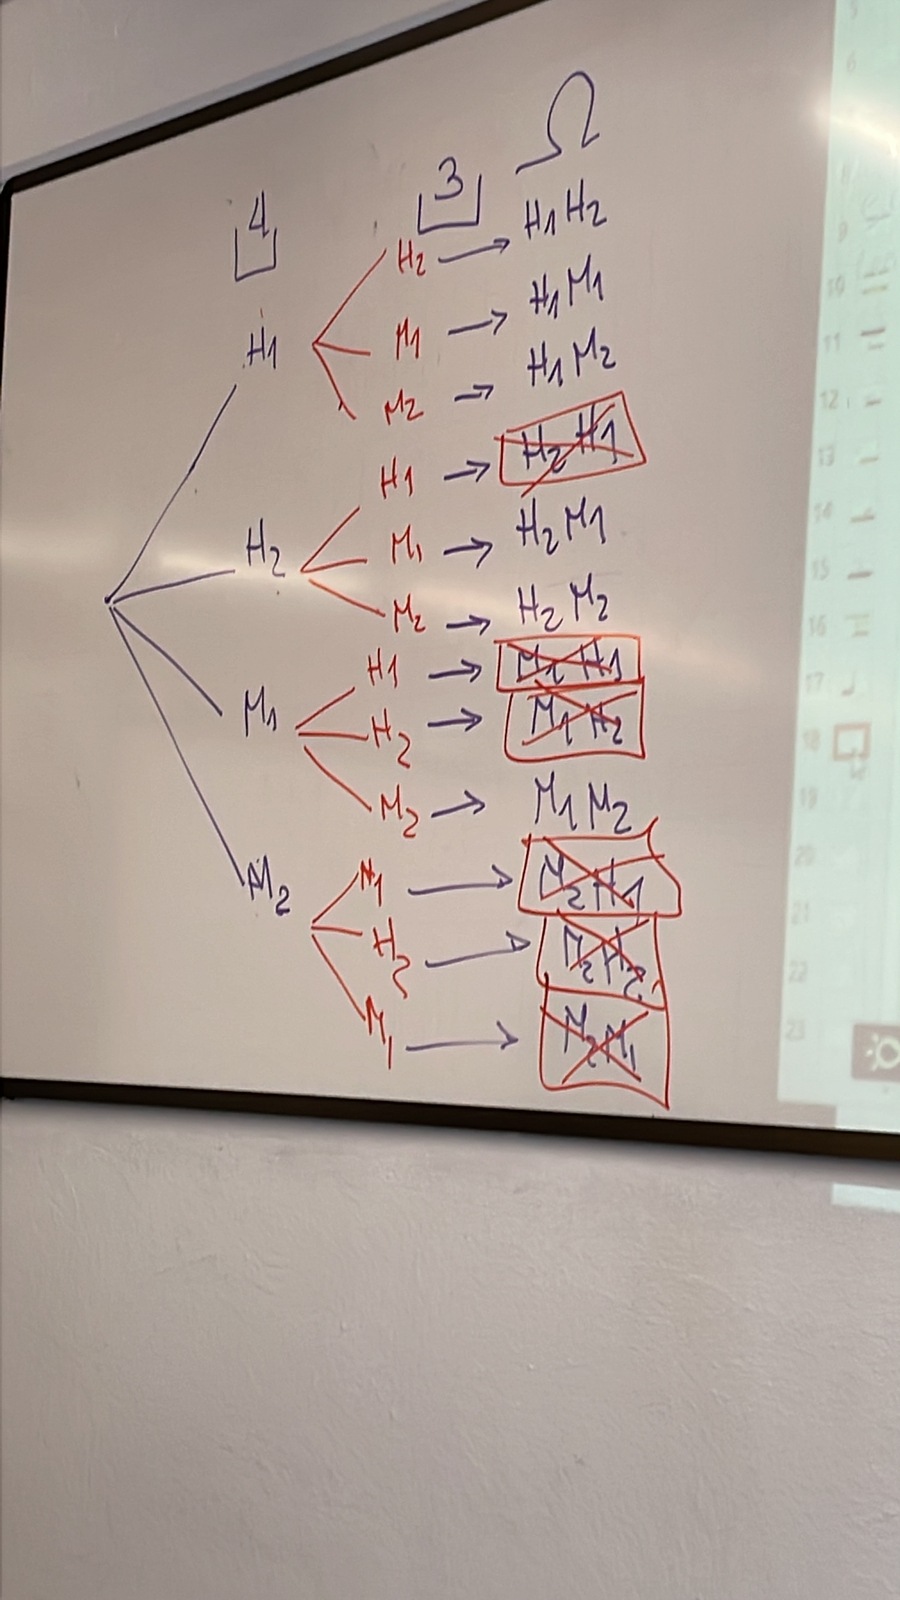 Ω
4 3
H1 H2 → H1 H2
M1 → H1 M1
M2 → H1 M2
H2 H1 → H2 H1
M1 → H2 M1
M2 → H2 M2
M1 H1 → M1 H1
H2 → M1 H2
M2 → M1 M2
M2 H1 → M2 H1
H2 → M2 H2
M1 → M2 M1
10
11
12
13
14
15
16
17
18
19
20
21
22
23